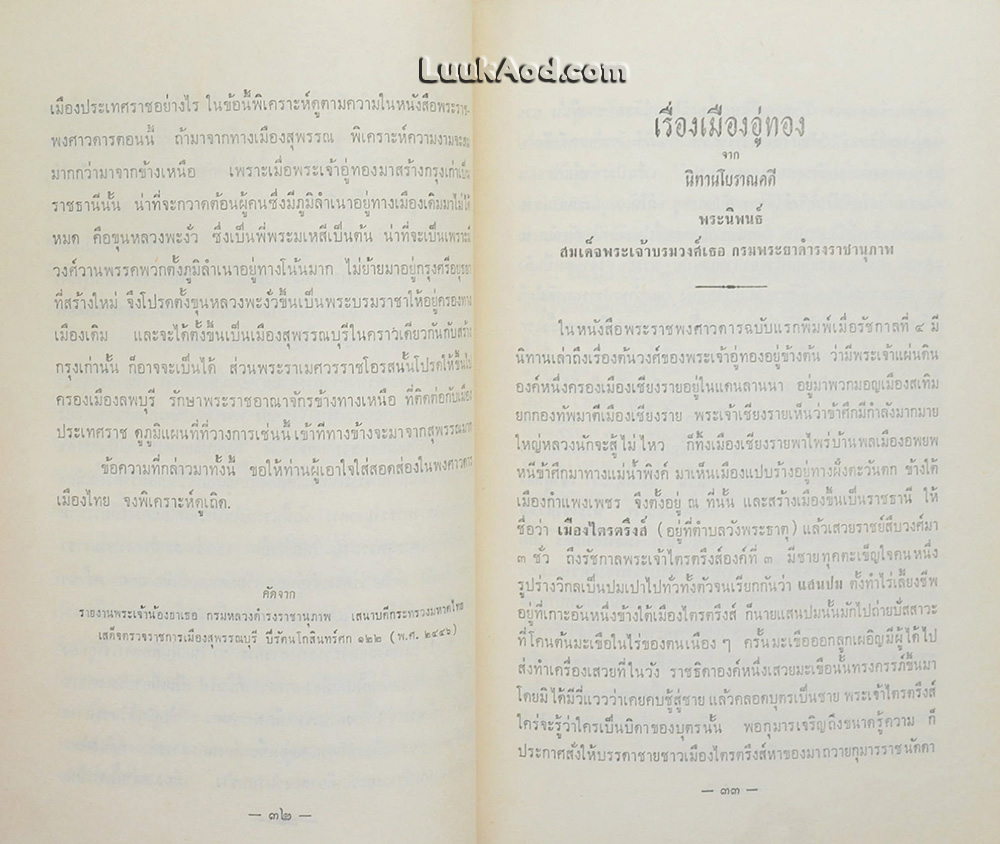 LuukAod.com
เมืองประเทศราชอย่างไร ในข้อนี้พิเคราะห์ดูตามความในหนังสือพระราช-
พงศาวดารตอนนี้ ถ้ามาจากทางเมืองสุพรรณ พิเคราะห์ความงามจะสม
มากกว่ามาจากข้างเหนือ เพราะเมื่อพระเจ้าอู่ทองมาสร้างกรุงเก่าเป็น
ราชธานีนั้น น่าที่จะกวาดต้อนผู้คนซึ่งมีภูมิลำเนาอยู่ทางเมืองเดิมมาไม่ได้
หมด คือขุนหลวงพะงั่ว ซึ่งเป็นพี่พระมเหสีเป็นต้น น่าที่จะเป็นเพราะมี
วงศ์วานพรรคพวกตั้งภูมิลำเนาอยู่ทางโน้นมาก ไม่ย้ายมาอยู่กรุงศรีอยุธยา
ที่สร้างใหม่ จึงโปรดตั้งขุนหลวงพะงั่วขึ้นเป็นพระบรมราชาให้อยู่ครองทาง
เมืองเดิม และจะได้ตั้งขึ้นเป็นเมืองสุพรรณบุรีในคราวเดียวกันกับสร้าง
กรุงเก่านั้น ก็อาจจะเป็นได้ ส่วนพระราเมศวรราชโอรสนั้นโปรดให้ขึ้นไป
ครองเมืองลพบุรี รักษาพระราชอาณาจักรข้างทางเหนือ ที่ติดต่อกับเมือง
ประเทศราช ดูภูมิแผนที่ที่วางการเช่นนี้ เข้าทีทางข้างจะมาจากสุพรรณมาก
ข้อความที่กล่าวมาทั้งนี้ ขอให้ท่านผู้เอาใจใส่สอดส่องในพงศาวดาร
เมืองไทย จงพิเคราะห์ดูเถิด.
คัดจาก
รายงานพระเจ้าน้องยาเธอ กรมหลวงดำรงราชานุภาพ เสนาบดีกระทรวงมหาดไทย
เสด็จตรวจราชการเมืองสุพรรณบุรี ปีรัตนโกสินทร์ศก ๑๒๒ (พ.ศ. ๒๔๔๖)
— ๓๒ —
เรื่องเมืองอู่ทอง
จาก
นิทานโบราณคดี
พระนิพนธ์
สมเด็จพระเจ้าบรมวงศ์เธอ กรมพระยาดำรงราชานุภาพ
ในหนังสือพระราชพงศาวดารฉบับแรกพิมพ์เมื่อรัชกาลที่ ๔ มี
นิทานเล่าถึงเรื่องต้นวงศ์ของพระเจ้าอู่ทองอยู่ข้างต้น ว่ามีพระเจ้าแผ่นดิน
องค์หนึ่งครองเมืองเชียงรายอยู่ในแดนลานนา อยู่มาพวกมอญเมืองสเทิม
ยกกองทัพมาตีเมืองเชียงราย พระเจ้าเชียงรายเห็นว่าข้าศึกมีกำลังมากมาย
ใหญ่หลวงนักจะสู้ไม่ไหว ก็ทิ้งเมืองเชียงรายพาไพร่บ้านพลเมืองอพยพ
หนีข้าศึกมาทางแม่น้ำพิงค์ มาเห็นเมืองแปบร้างอยู่ทางฝั่งตะวันตก ข้างใต้
เมืองกำแพงเพชร จึงตั้งอยู่ ณ ที่นั้น และสร้างเมืองขึ้นเป็นราชธานี ให้
ชื่อว่า เมืองไตรตรึงส์ (อยู่ที่ตำบลวังพระธาตุ) แล้วเสวยราชย์สืบวงศ์มา
๓ ชั่ว ถึงรัชกาลพระเจ้าไตรตรึงส์องค์ที่ ๓ มีชายทุคตะเข็ญใจคนหนึ่ง
รูปร่างวิกลเป็นปมเปาไปทั่วทั้งตัวจนเรียกกันว่า แสนปม ตั้งทำไร่เลี้ยงชีพ
อยู่ที่เกาะอันหนึ่งข้างใต้เมืองไตรตรึงส์ ก็นายแสนปมนั้นมักไปถ่ายปัสสาวะ
ที่โคนต้นมะเขือในไร่ของตนเนือง ๆ ครั้นมะเขือออกลูกเผอิญมีผู้ได้ไป
ส่งทำเครื่องเสวยที่ในวัง ราชธิดาองค์หนึ่งเสวยมะเขือนั้นทรงครรภ์ขึ้นมา
โดยมิได้มีวี่แววว่าเคยคบชู้สู่ชาย แล้วคลอดบุตรเป็นชาย พระเจ้าไตรตรึงส์
ใคร่จะรู้ว่าใครเป็นบิดาของบุตรนั้น พอกุมารเจริญถึงขนาดรู้ความ ก็
ประกาศสั่งให้บรรดาชายชาวเมืองไตรตรึงส์หาของมาถวายกุมารราชนัดดา
— ๓๓ —